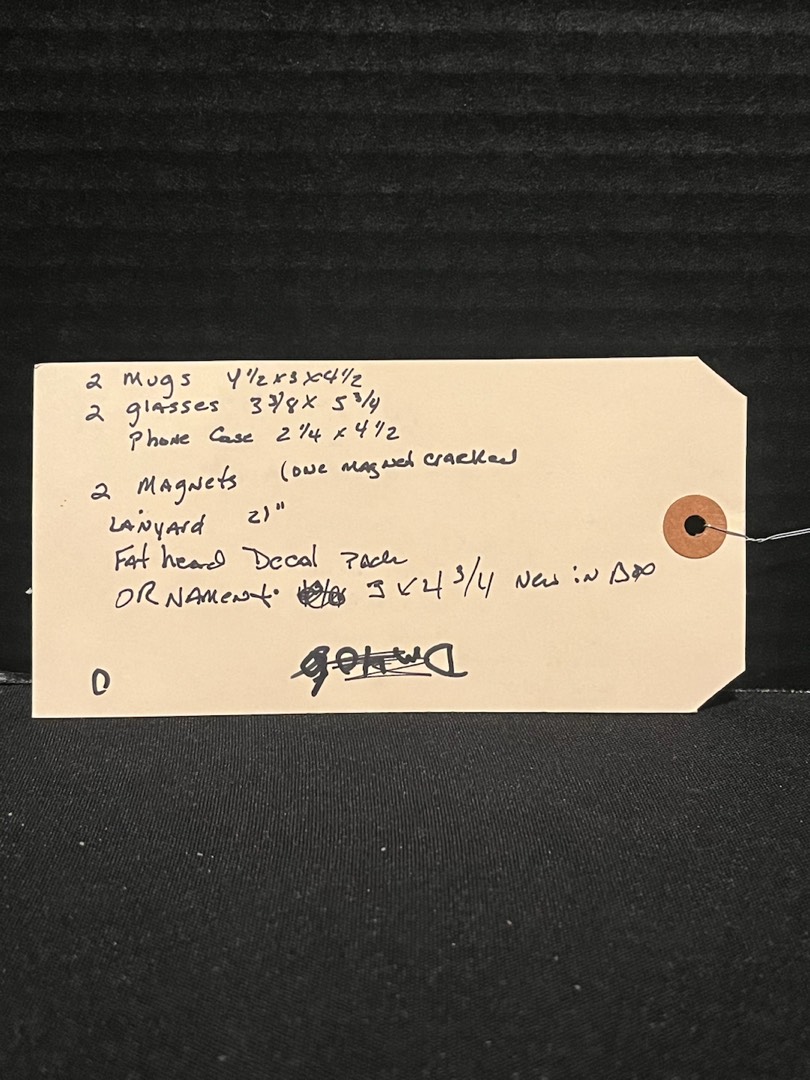 2 Mugs 4 1/2 x 3 x 4 1/2
2 glasses 3 3/8 x 5 3/4
Phone Case 2 1/4 x 4 1/2
2 MAGNets (one MAgNet cracked
LANyard 21"
Fat head Decal Pack
ORNAMENT 3 x 4 3/4 New in Box
D